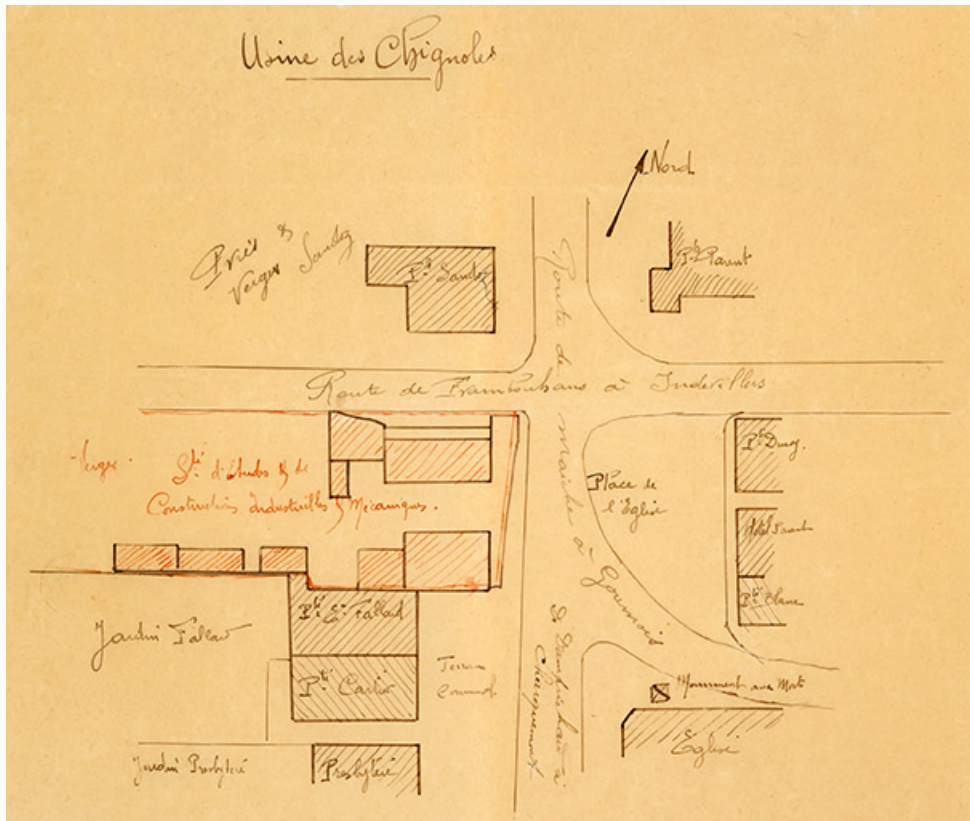 Usine des Chignoles
Nord
Prés &
Verger Sandoz
Pté Sandoz
Pté Parent
Route de Frambouhans à Indevillers
Route de Maiche à Goumois
Verger
Sté d'Etudes & de
Constructions Industrielles & Mécaniques.
Place de
l'Eglise
Pté Duray
Hôtel Parent
Pté Blanc
Pté Vve Fallard
Jardin Fallard
Pté Cartier
Terrain
Communal
de Damprichard à
Charquemont
Monument aux Morts
Eglise
Jardin Presbytère
Presbytère